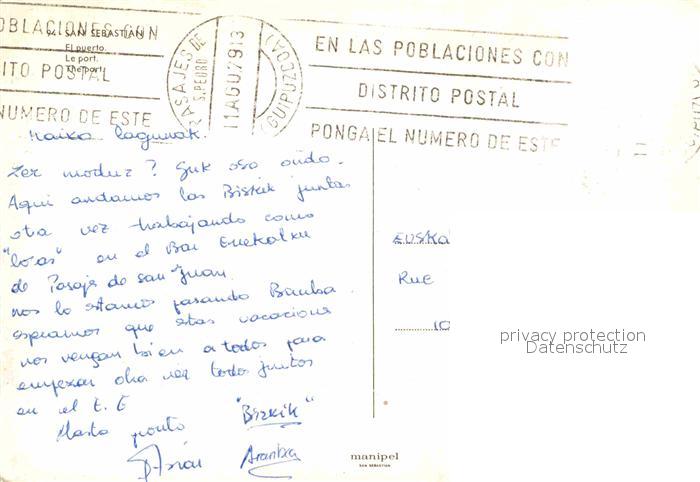 OBLACIONES CON
94 SAN SEBASTIAN
El puerto.
Le port.
The port.
ITO POSTAL
NUMERO DE ESTE
PASAJES DE
S. PEDRO
11 AGO 79 13
(GUIPUZCOA)
EN LAS POBLACIONES CON
DISTRITO POSTAL
PONGA EL NUMERO DE ESTE
Maixa lagunak.
Zer moduz? Guk oso ondo.
Aqui andamos las Bizkik juntas
otra vez trabajando como
"locas" en el Bar
de Pasajes de San Juan.
nos lo estamos pasando Bamba.
esperamos que estas vacaciones
nos vengan bien a todos para
empezar otra vez todos juntos
en el E.E
Hasta pronto "Bizkik"
Arantxa
EUSKA
RUE
10
privacy protection
Datenschutz
manipel
SAN SEBASTIAN